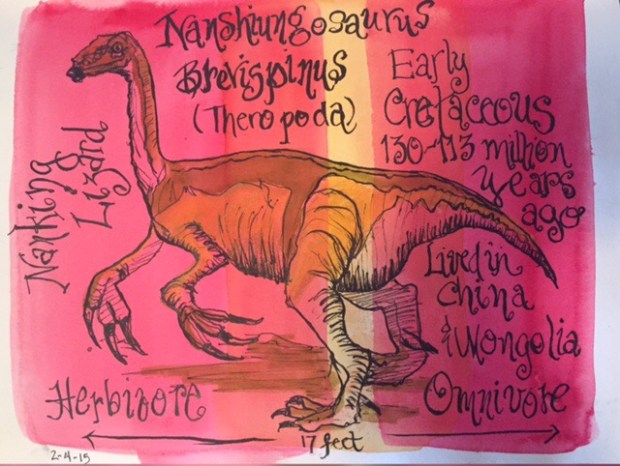 Nanshiungosaurus
Brevispinus
(Theropoda)
Early
Cretaceous
130-113 million
years
ago
Nanking
Lizard
Lived in
China
& Mongolia
Herbivore
Omnivore
17 feet
2-4-15